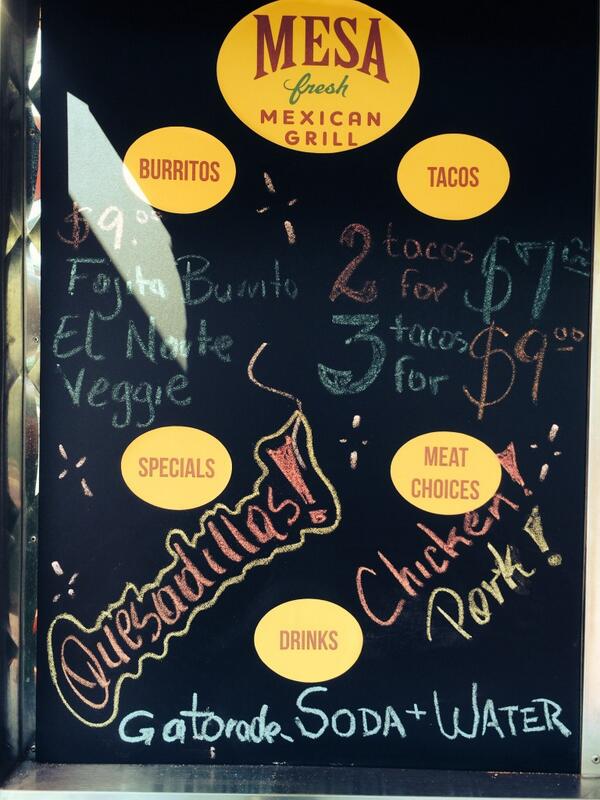 MESA
fresh
MEXICAN
GRILL
BURRITOS
$9.00
Fajita Burrito
El Norte
Veggie
TACOS
2 tacos for $7.50
3 tacos for $9.00
SPECIALS
Quesadillas!
MEAT
CHOICES
Chicken!
Pork!
DRINKS
Gatorade, SODA + WATER